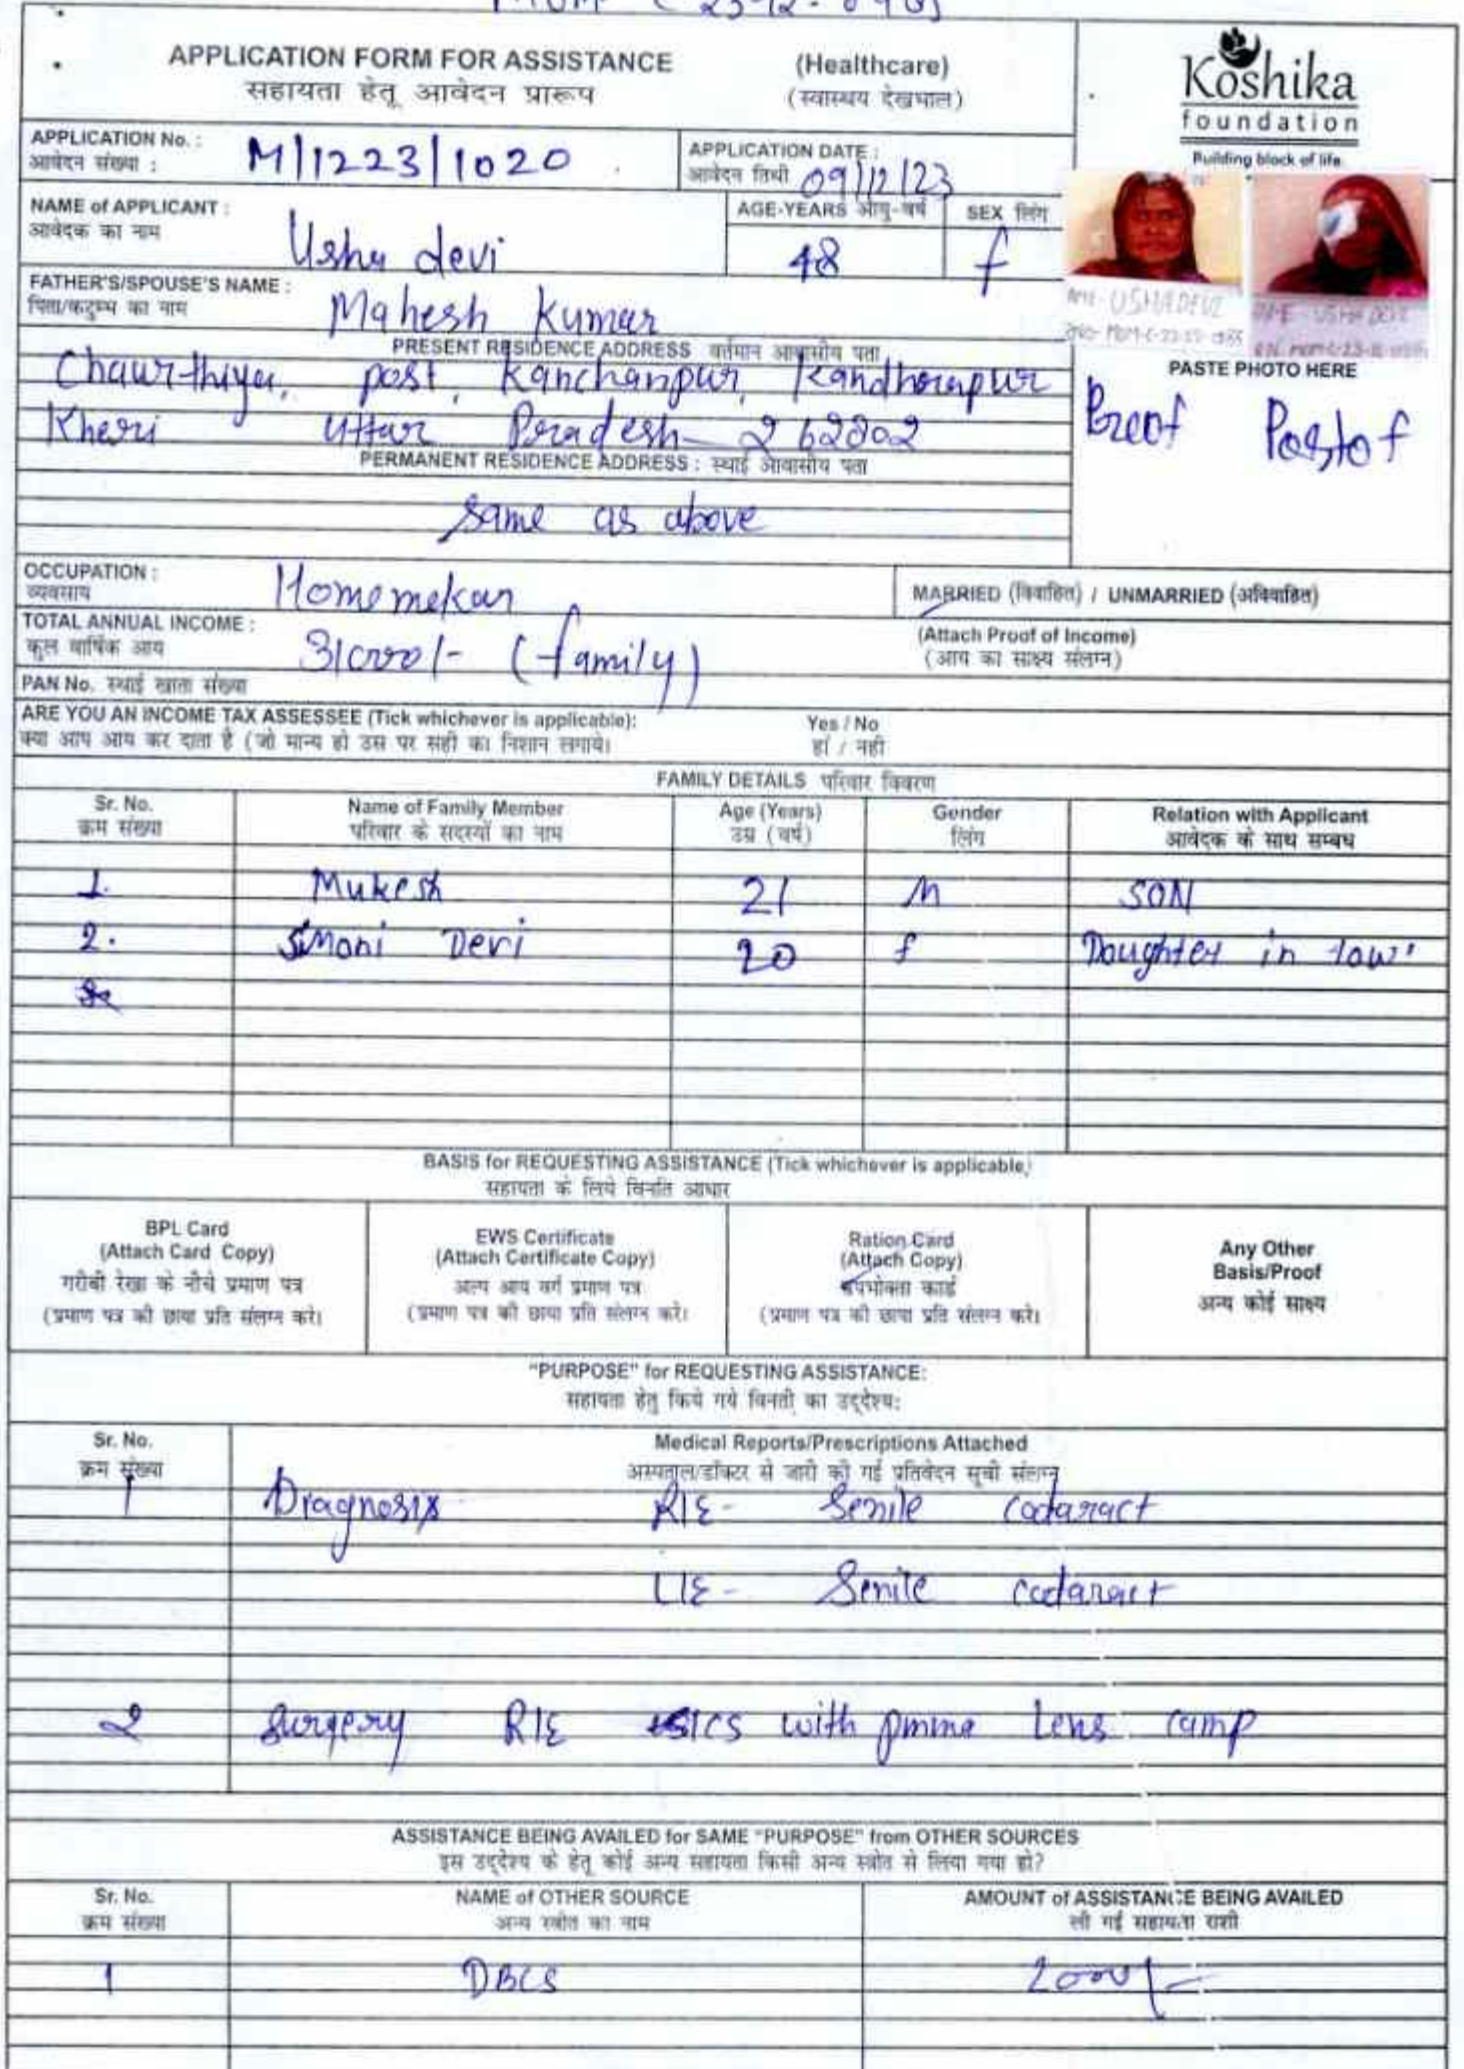 APPLICATION FORM FOR ASSISTANCE (Healthcare)
सहायता हेतू आवेदन प्रारूप (स्वास्थ्य देखभाल)
Koshika
foundation
Building block of life
APPLICATION No. : M/1223/1020
आवेदन संख्या :
APPLICATION DATE :
आवेदन तिथी 09/12/23
NAME of APPLICANT :
आवेदक का नाम Usha devi
AGE-YEARS आयु-वर्ष 48
SEX लिंग f
FATHER'S/SPOUSE'S NAME :
पिता/कटुम्भ का नाम Mahesh Kumar
PRESENT RESIDENCE ADDRESS वर्तमान आवासीय पता
post, Kanchanpur,
Kheri Uttar Pradesh
PERMANENT RESIDENCE ADDRESS : स्थाई आवासीय पता
Same as above
USHA DEVI
PASTE PHOTO HERE
OCCUPATION : Homemekar
व्यवसाय
MARRIED (विवाहित) / UNMARRIED (अविवाहित)
TOTAL ANNUAL INCOME :
कुल वार्षिक आय 31000/- (family)
(Attach Proof of Income)
(आय का साक्ष्य संलग्न)
PAN No. स्थाई खाता संख्या
ARE YOU AN INCOME TAX ASSESSEE (Tick whichever is applicable): Yes / No
क्या आप आय कर दाता है (जो मान्य हो उस पर सही का निशान लगाये। हां / नही
FAMILY DETAILS परिवार विवरण
Sr. No. Name of Family Member Age (Years) Gender Relation with Applicant
क्रम संख्या परिवार के सदस्यों का नाम उम्र (वर्ष) लिंग आवेदक के साथ सम्बध
1. Mukesh 21 M SON
2. Simoni Devi 20 f Daughter in law
BASIS for REQUESTING ASSISTANCE (Tick whichever is applicable)
सहायता के लिये विनति आधार
BPL Card
(Attach Card Copy)
गरीबी रेखा के नीचे प्रमाण पत्र
(प्रमाण पत्र की छाया प्रति संलग्न करे।
EWS Certificate
(Attach Certificate Copy)
अल्प आय वर्ग प्रमाण पत्र
(प्रमाण पत्र की छाया प्रति संलग्न करे।
Ration Card
(Attach Copy)
उपभोक्ता कार्ड
(प्रमाण पत्र की छाया प्रति संलग्न करे।
Any Other
Basis/Proof
अन्य कोई साक्ष्य
"PURPOSE" for REQUESTING ASSISTANCE:
सहायता हेतु किये गये विनती का उद्देश्य:
Sr. No. Medical Reports/Prescriptions Attached
क्रम संख्या अस्पताल/डॉक्टर से जारी की गई प्रतिवेदन सूची संलग्न
1 Diagnosis R/E - Senile cataract
L/E - Senile cataract
2 Surgery R/E SICS with pmma Lens camp
ASSISTANCE BEING AVAILED for SAME "PURPOSE" from OTHER SOURCES
इस उद्देश्य के हेतू कोई अन्य सहायता किसी अन्य स्त्रोत से लिया गया हो?
Sr. No. NAME of OTHER SOURCE AMOUNT of ASSISTANCE BEING AVAILED
क्रम संख्या अन्य स्त्रोत का नाम ली गई सहायता राशी
1 DBCS 2000/-